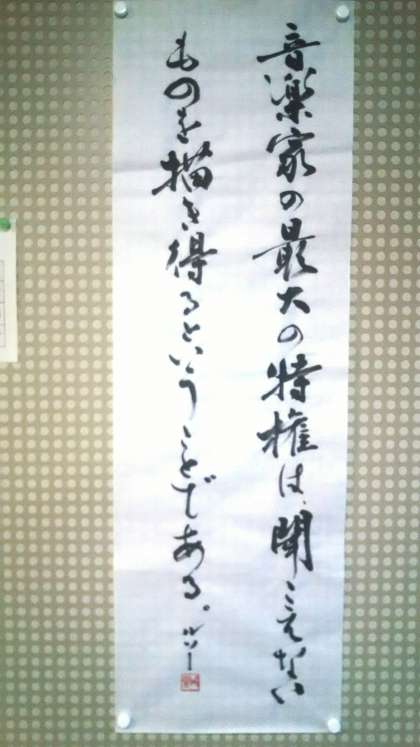 音楽家の最大の特権は、聞こえない
ものを描き得るということである。ルソー